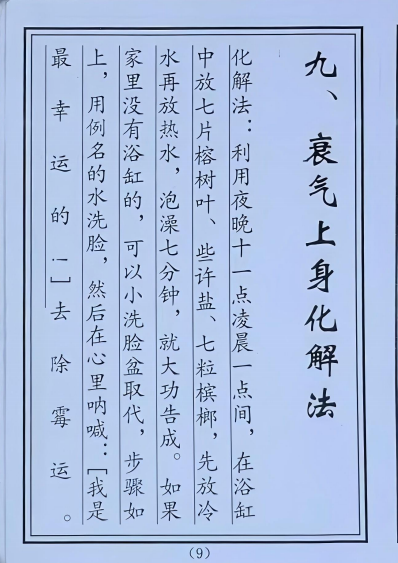 九、衰气上身化解法
化解法：利用夜晚十一点凌晨一点间，在浴缸
中放七片榕树叶、些许盐、七粒槟榔，先放冷
水再放热水，泡澡七分钟，就大功告成。如果
家里没有浴缸的，可以小洗脸盆取代，步骤如
上，用例名的水洗脸，然后在心里呐喊：［我是
最幸运的！］去除霉运。
（9）